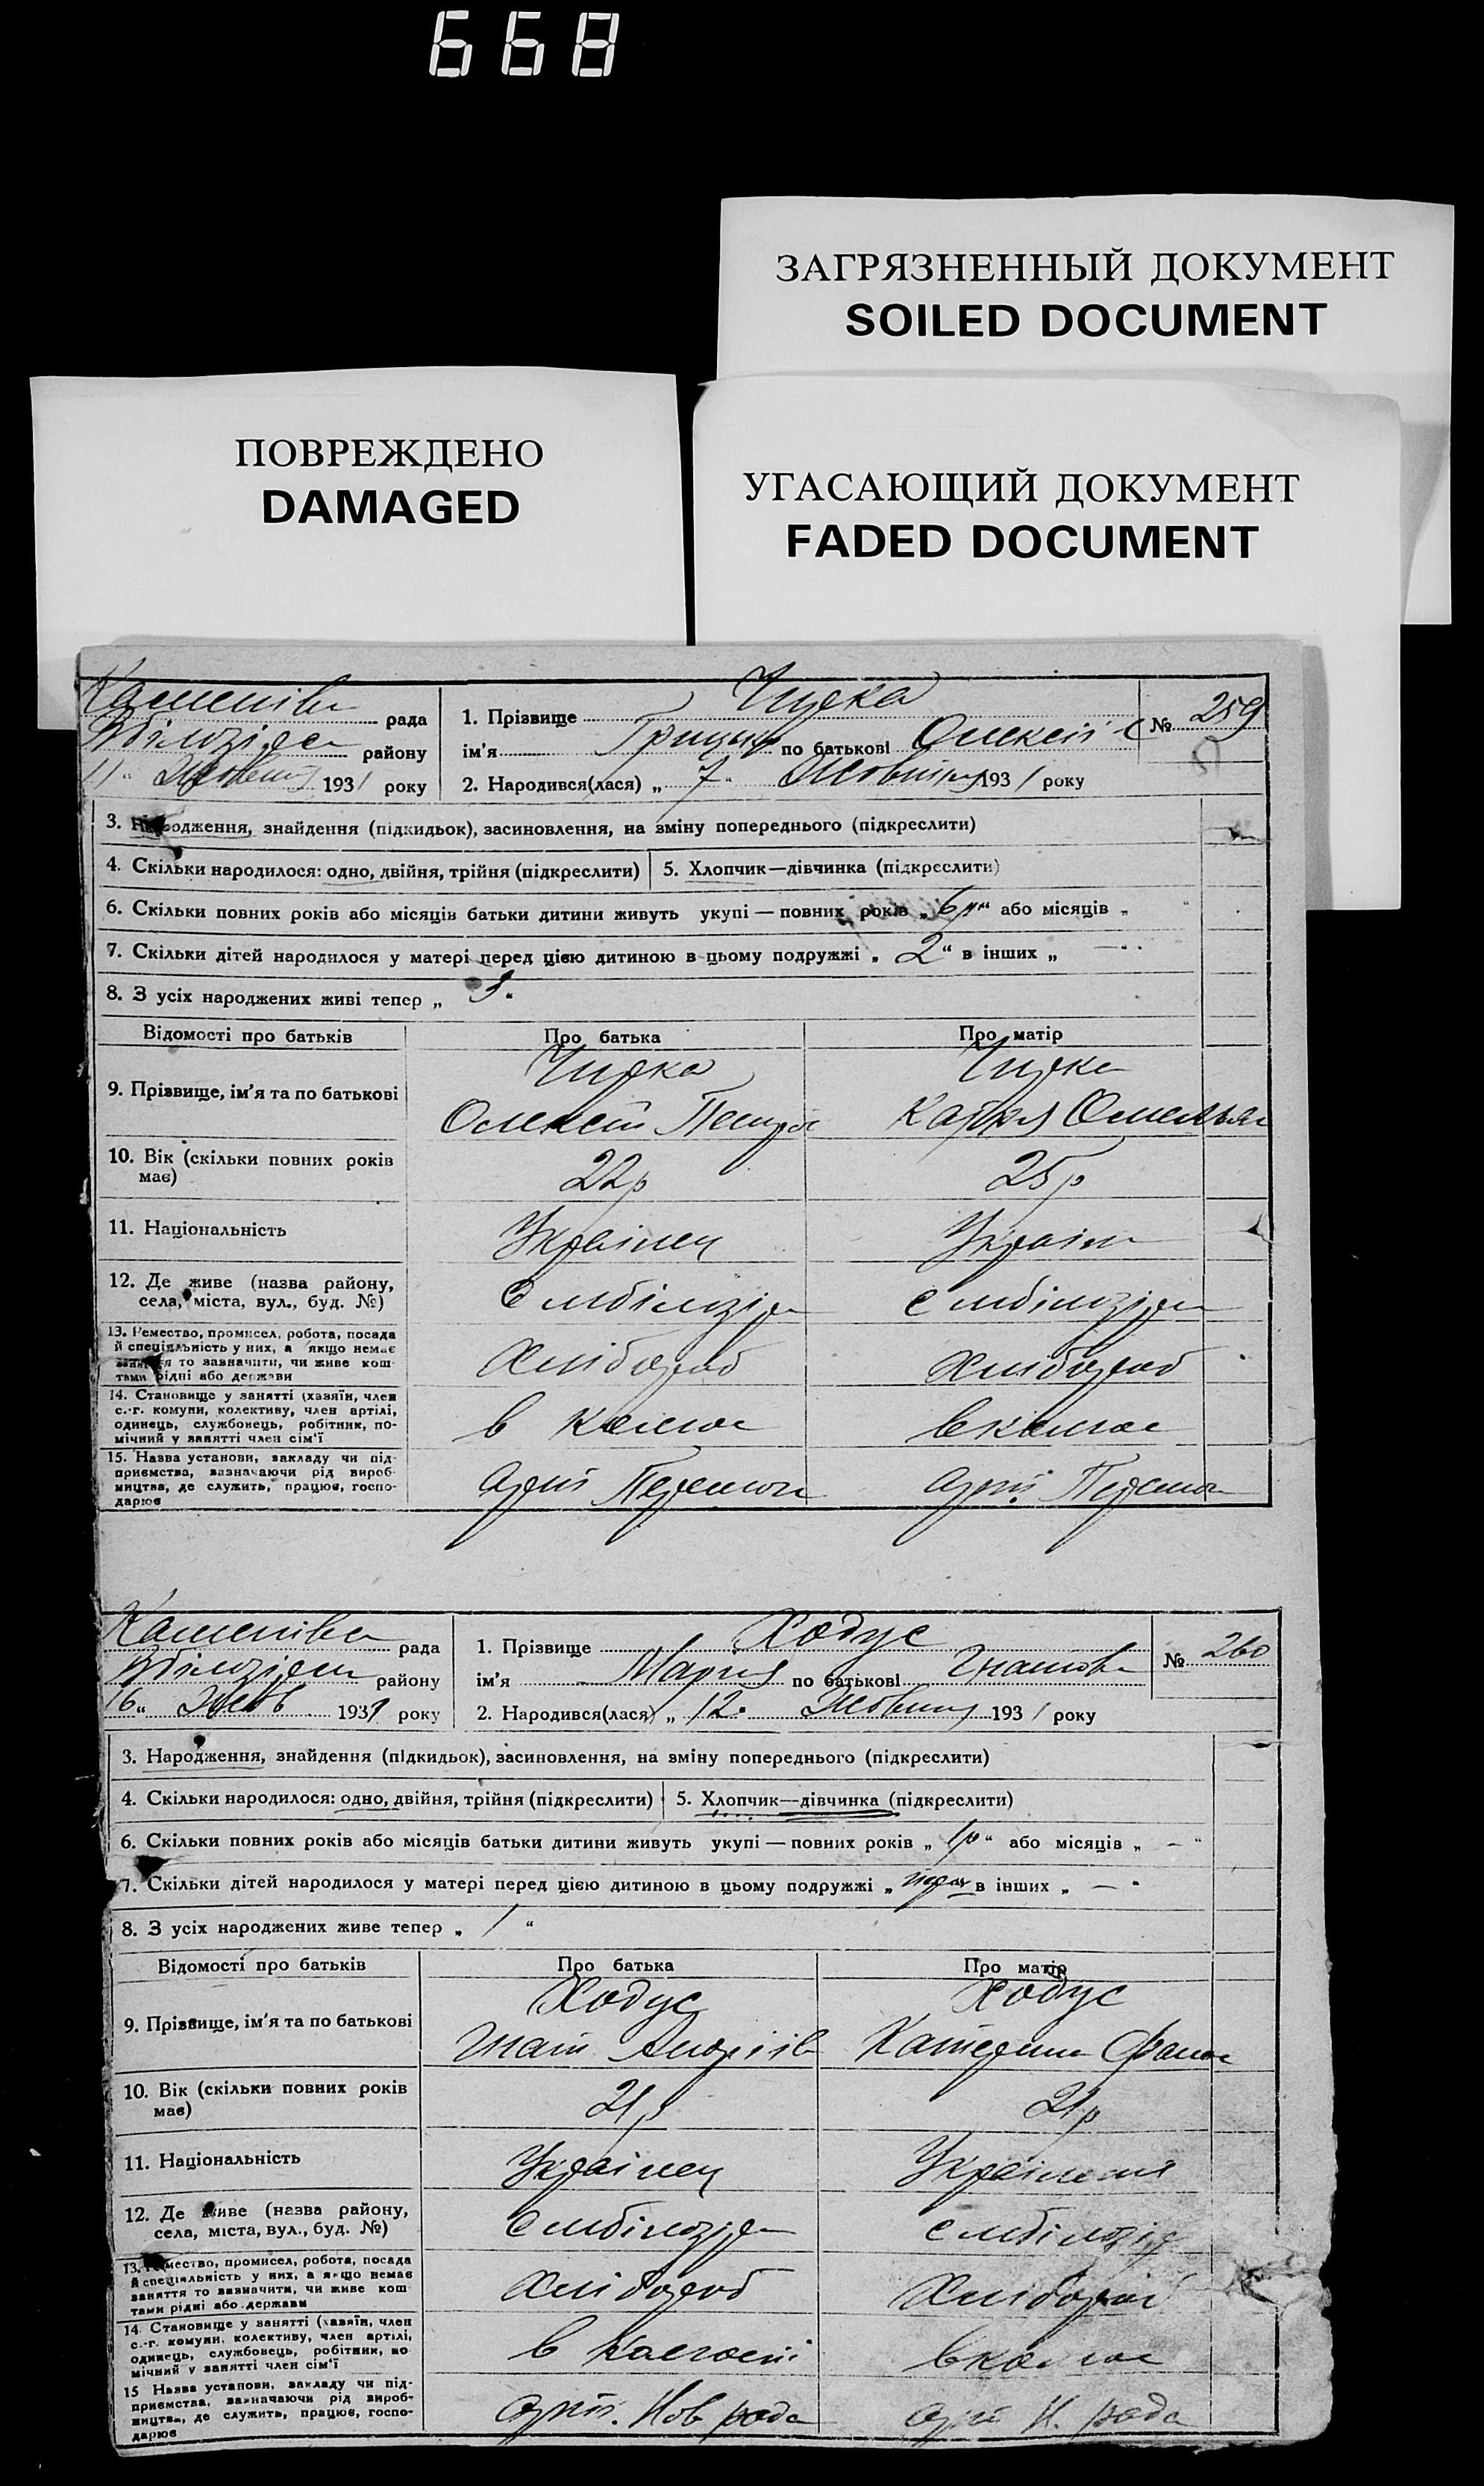 668
ЗАГРЯЗНЕННЫЙ ДОКУМЕНТ
SOILED DOCUMENT
ПОВРЕЖДЕНО
DAMAGED
УГАСАЮЩИЙ ДОКУМЕНТ
FADED DOCUMENT
рада
району
11 " 1931 року
1. Прізвище
ім'я Грицько по батькові Олексій
2. Народився(лася) „ 7 " Жовтня 1931 року
№ 259
3. Народження, знайдення (підкидьок), засиновлення, на зміну попереднього (підкреслити)
4. Скільки народилося: одно, двійня, трійня (підкреслити)
5. Хлопчик—дівчинка (підкреслити)
6. Скільки повних років або місяців батьки дитини живуть укупі — повних років „ 6 р " або місяців „ "
7. Скільки дітей народилося у матері перед цією дитиною в цьому подружжі „ 2 " в інших „ — "
8. З усіх народжених живі тепер „ 3 "
Відомості про батьків
Про батька
Про матір
9. Прізвище, ім'я та по батькові
Олексій Петро
10. Вік (скільки повних років
має)
22 р
25 р
11. Національність
Українец
Україн
12. Де живе (назва району,
села, міста, вул., буд. №)
13. Ремество, промисел, робота, посада
й спеціяльність у них, а якщо немає
заняття то зазначити, чи живе кош-
тами рідні або держави
Хлібороб
Хлібороб
14. Становище у занятті (хазяїн, член
с.-г. комуни, колективу, член артілі,
одинець, службовець, робітник, по-
мічний у занятті член сім'ї
в колгос
в колгос
15. Назва установи, закладу чи під-
приємства, зазначаючи рід вироб-
ництва, де служить, працює, госпо-
дарює
рада
району
16 " Жовт 1931 року
1. Прізвище Ходус
ім'я Мария по батькові Гнатова
2. Народився(лася) „ 12 " Жовтня 1931 року
№ 260
3. Народження, знайдення (підкидьок), засиновлення, на зміну попереднього (підкреслити)
4. Скільки народилося: одно, двійня, трійня (підкреслити)
5. Хлопчик—дівчинка (підкреслити)
6. Скільки повних років або місяців батьки дитини живуть укупі — повних років „ 1 р " або місяців „ — "
7. Скільки дітей народилося у матері перед цією дитиною в цьому подружжі „ в інших „ — "
8. З усіх народжених живе тепер „ 1 "
Відомості про батьків
Про батька
Про матір
9. Прізвище, ім'я та по батькові
Ходус
Ходус
Гнат Андріїв
Катерина
10. Вік (скільки повних років
має)
21 р
21 р
11. Національність
Українец
12. Де живе (назва району,
села, міста, вул., буд. №)
13. Ремество, промисел, робота, посада
й спеціяльність у них, а якщо немає
заняття то зазначити, чи живе кош-
тами рідні або держави
Хлібороб
Хлібороб
14. Становище у занятті (хазяїн, член
с.-г. комуни, колективу, член артілі,
одинець, службовець, робітник, по-
мічний у занятті член сім'ї
в колгоспі
в колгос
15 Назва установи, закладу чи під-
приємства, зазначаючи рід вироб-
ництва, де служить, працює, госпо-
дарює
Нов рада
Н. рада